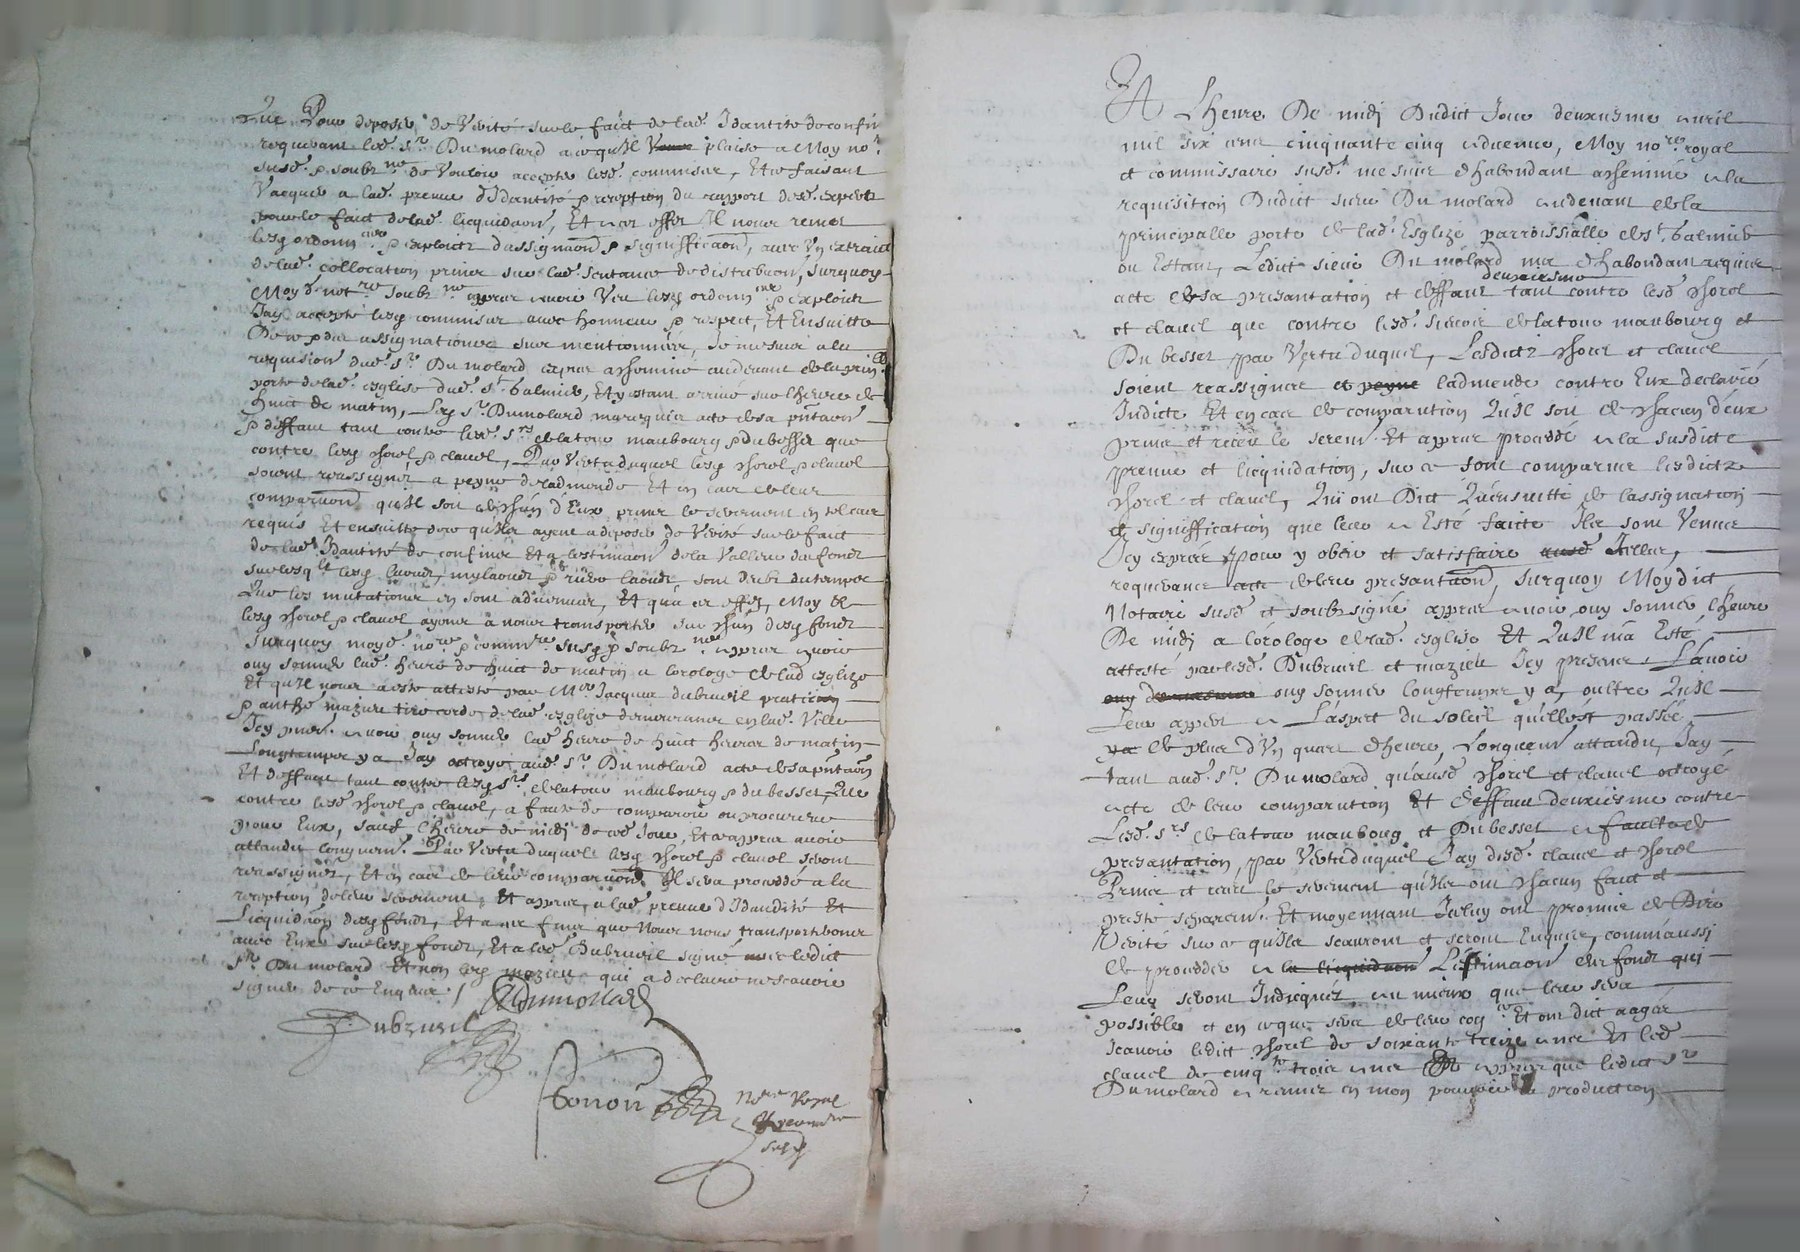 que Pour deposer de Verité sur le faict de lad. Idantité de confins
requerant led. Sr Du molard a ce qu'Il plaise a Moy nore
susd. & soubzné de Vouloir accepter lesd. commission, Et ce faisant
Vacquer a lad. preuve d'Idantité & reception du rapport desd. expertz
pour le faict de lad. licquidaon, Et a cet effet Il nous remet
lesd ordonnces & exploictz d'assignaon & signifficaon, avec Un extraict
de lad. collocation prinse sur lad. sentance de distribuon, surquoy
Moyd notre soubzné apres avoir Veu lesd ordonnces & exploictz
Jay accepté lesd commission avec honneur & respect, Et Ensuitte
assignations sus mentionnées, Je me suis a la
requisition dud. Sr Du molard expres acheminé audevant de la prinlle
porte de lad. esglise dud. St Galmier, Et y estant arrivé sur lheure de
huict de matin, Led Sr Dumolard ma requis acte de sa pntaon
& deffaut tant contre lesd. Srs de la tour maubourg & du besset que
contre lesd Thorel & clavel, Par Vertu duquel lesd Thorel & clavel
soient reassignés a peyne de ladmende Et en cas de leur
comparuon qu'Il soit de chun d'Eux prins le serement en tel cas
requis Et ensuitte de ce qu'Ilz ayent a deposer de Verité sur le faict
de lad. Idantité de confins Et a lestimaon de la Valleur des fondz
sur lesqls lesd laoudz, mylaoudz & laoudz, sont deubz du temps
Que les mutations en sont advenues, Et qu'a cet effet, Moy &
lesd Thorel & clavel ayons a nous transporter sur chun desd fondz
Surquoy moyd. nore & commre susd & soubzné apres avoir
ouy sonner lad. heure de huict de matin a lorologe de lad esglize
Et qu'Il nous a esté attesté par Me Jacques dubrueil praticien
& anthe mazieu tire corde de lad. esglize demeurans en lad. Ville
Icy pns. avoir ouy sonner lad heure de huict heures de matin
Longtemps y a Jay octroyé aud. Sr Du molard acte de sa pntaon
Et deffaut tant contre lesd Srs de la tour maubourg & du besset, Que
contre lesd Thorel & clavel, a faute de comparoir ou procureur
pour Eux, sauf lheure de midi de ced. Jour, Et apres avoir
attandu longuemt. Par Vertu duquel lesd Thorel & clavel seront
reassignés, Et en cas de leur comparuon Il sera procedé a la
reception de leur serement, Et apres, a lad. preuve d'Idantité Et
Licquidaon desd fondz, Et a ces fins que Nous nous transporterons
avec Eux sur lesd fondz, Et a led. Dubrueil signé avec ledict
Sr Du molard Et non led mazieu qui a declairé ne scavoir
signer de ce Enquis /
Dumollard
Dubrueil
Nore Royal
Et commre
susd
A Lheure De midi Dudict Jour deuxiesme avril
mil six cens cinquante cinq advenue, Moy nore royal
et commissaire susd. me suis d'habondant acheminé a la
requisition Dudict sieur Du molard audevant de la
principalle porte de lad. Esglize parroissialle de St. Galmier
ou Estant, Ledict sieur Du molard ma d'habondant requis
acte de sa presantation et deffaut deuxiesme tant contre lesd Thorel
et clavel que contre lesd. sieurs de la tour maubourg et
Du besset par Vertu duquel, Lesdictz Thorel et clavel
soient reassignés et peyne ladmende contre Eux declairée
Indicte Et en cas de comparution Qu'Il soit de chacun d'eux
prins et receu le serent Et apres proceddé a la susdicte
preuve et licquidation, sur ce sont comparus lesdictz
Thorel et clavel, Qui ont Dict Qu'ensuitte de lassignation
& signiffication que leur a Esté faicte Ilz sont Venus
Icy expres Pour y obeir et satisfaire Illec,
requerans de leur presantaon, Surquoy Moydict
Notaire susd et soubsigné apres avoir ouy sonner Lheure
De midi a lorologe de lad. esglise Et Qu'Il ma Esté
attesté par lesd. Dubrueil et mazieu Icy presens, Lavoir
ouy ouy sonner Longtemps y a, oultre Qu'Il
Leur appert a Laspect du soleil qu'elle est passée
ya de plus d'Un quart dheure, Longuemt attandu, Jay
tant aud. Sr. Du molard qu'ausd Thorel et clavel octroyé
acte de leur comparution Et deffaut deuxiesme contre
Lesd. Srs de la tour maubourg et Du besset a faulte de
presantation, par Vertu duquel Jay desd. clavel et Thorel
Prins et receu le serement qu'Ilz ont chacun faict et
presté separemt. Et moyennant Iceluy ont promis de Dire
Verité sur ce qu'Ilz scauront et seront Enquis, comm'aussi
de procedder a la licquidaon Lestimaon des fondz qui
Leurs seront Indicqués au mieux que leur sera
possible et en ce que sera de leur cogce Et ont dict aagés
scavoir ledict Thorel de soixante treize ans Et led.
clavel de cinqte trois ans Et apres que ledict Sr
Du molard a remis en mon pouvoir la production